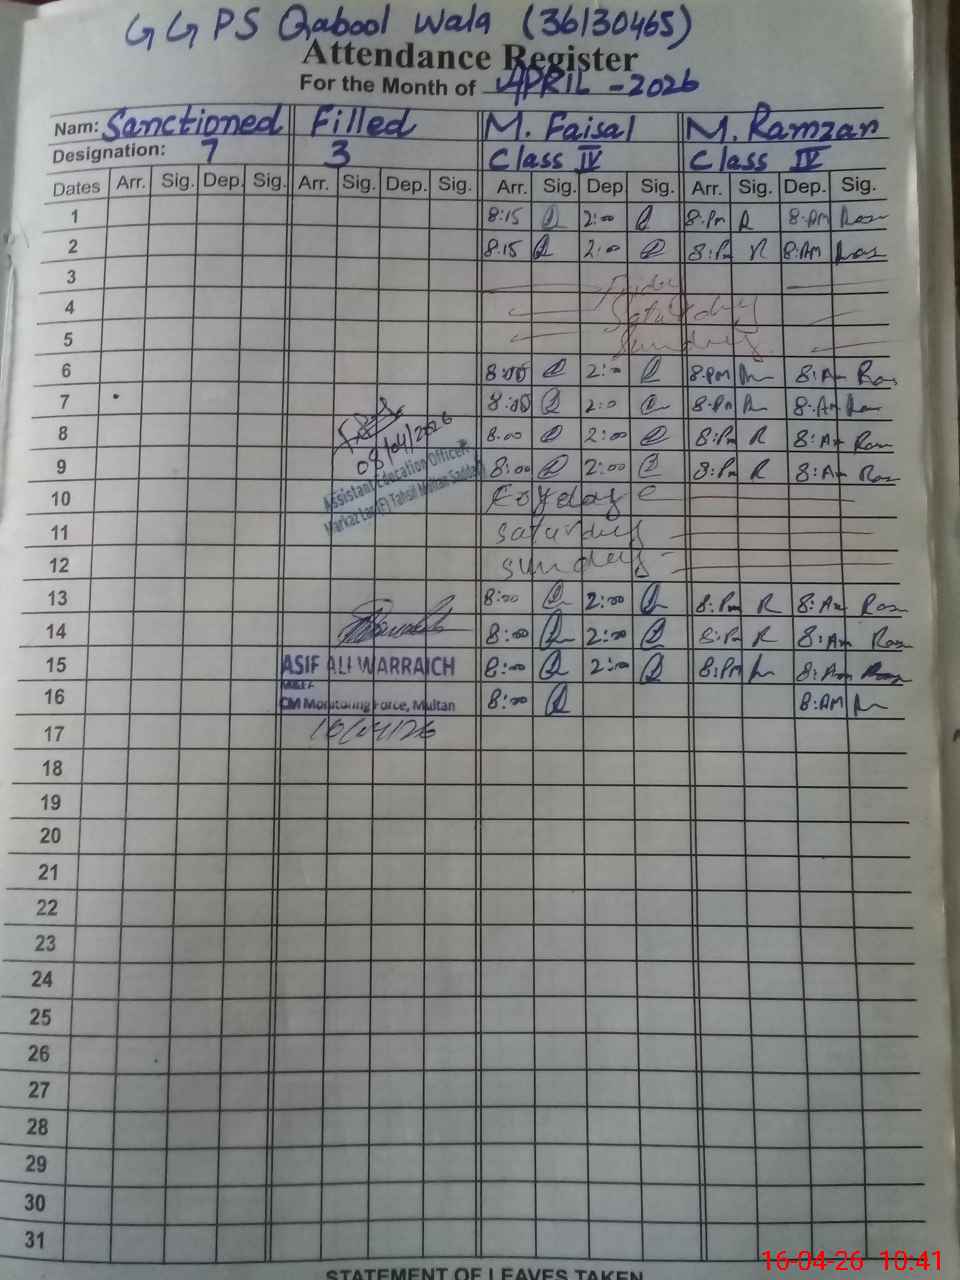 GGPS Qabool Wala (36130465)
Attendance Register
For the Month of APRIL - 2026
Nam: Sanctioned Filled M. Faisal M. Ramzan
Designation: 7 3 Class IV Class IV
Dates Arr. Sig. Dep. Sig. Arr. Sig. Dep. Sig. Arr. Sig. Dep Sig. Arr. Sig. Dep. Sig.
1 8:15 2:00 8:Pm R 8:AM
2 8:15 2:00 8:Pm R 8:AM
3 Friday
4 Saturday
5 Sunday
6 2:00 8:PM 8:Am
7 2:0 8:PM 8:Am
8 8:00 2:00 8:Pm R 8:Am
08/04/2026
9 8:00 2:00 8:Pm R 8:Am
Assistant Education Officer
Markaz Lar (F) Tahsil Multan Saddar
10
11 Saturday
12 Sunday
13 8:00 2:00 8:Pm R 8:Am
14 8:00 2:00 8:Pm R 8:Am
15 ASIF ALI WARRAICH 8:00 2:00 8:PM 8:Am
16 CM Monitoring Force, Multan 8:00 8:AM
17 16/04/26
18
19
20
21
22
23
24
25
26
27
28
29
30
31
STATEMENT OF LEAVES TAKEN
16-04-26 10:41